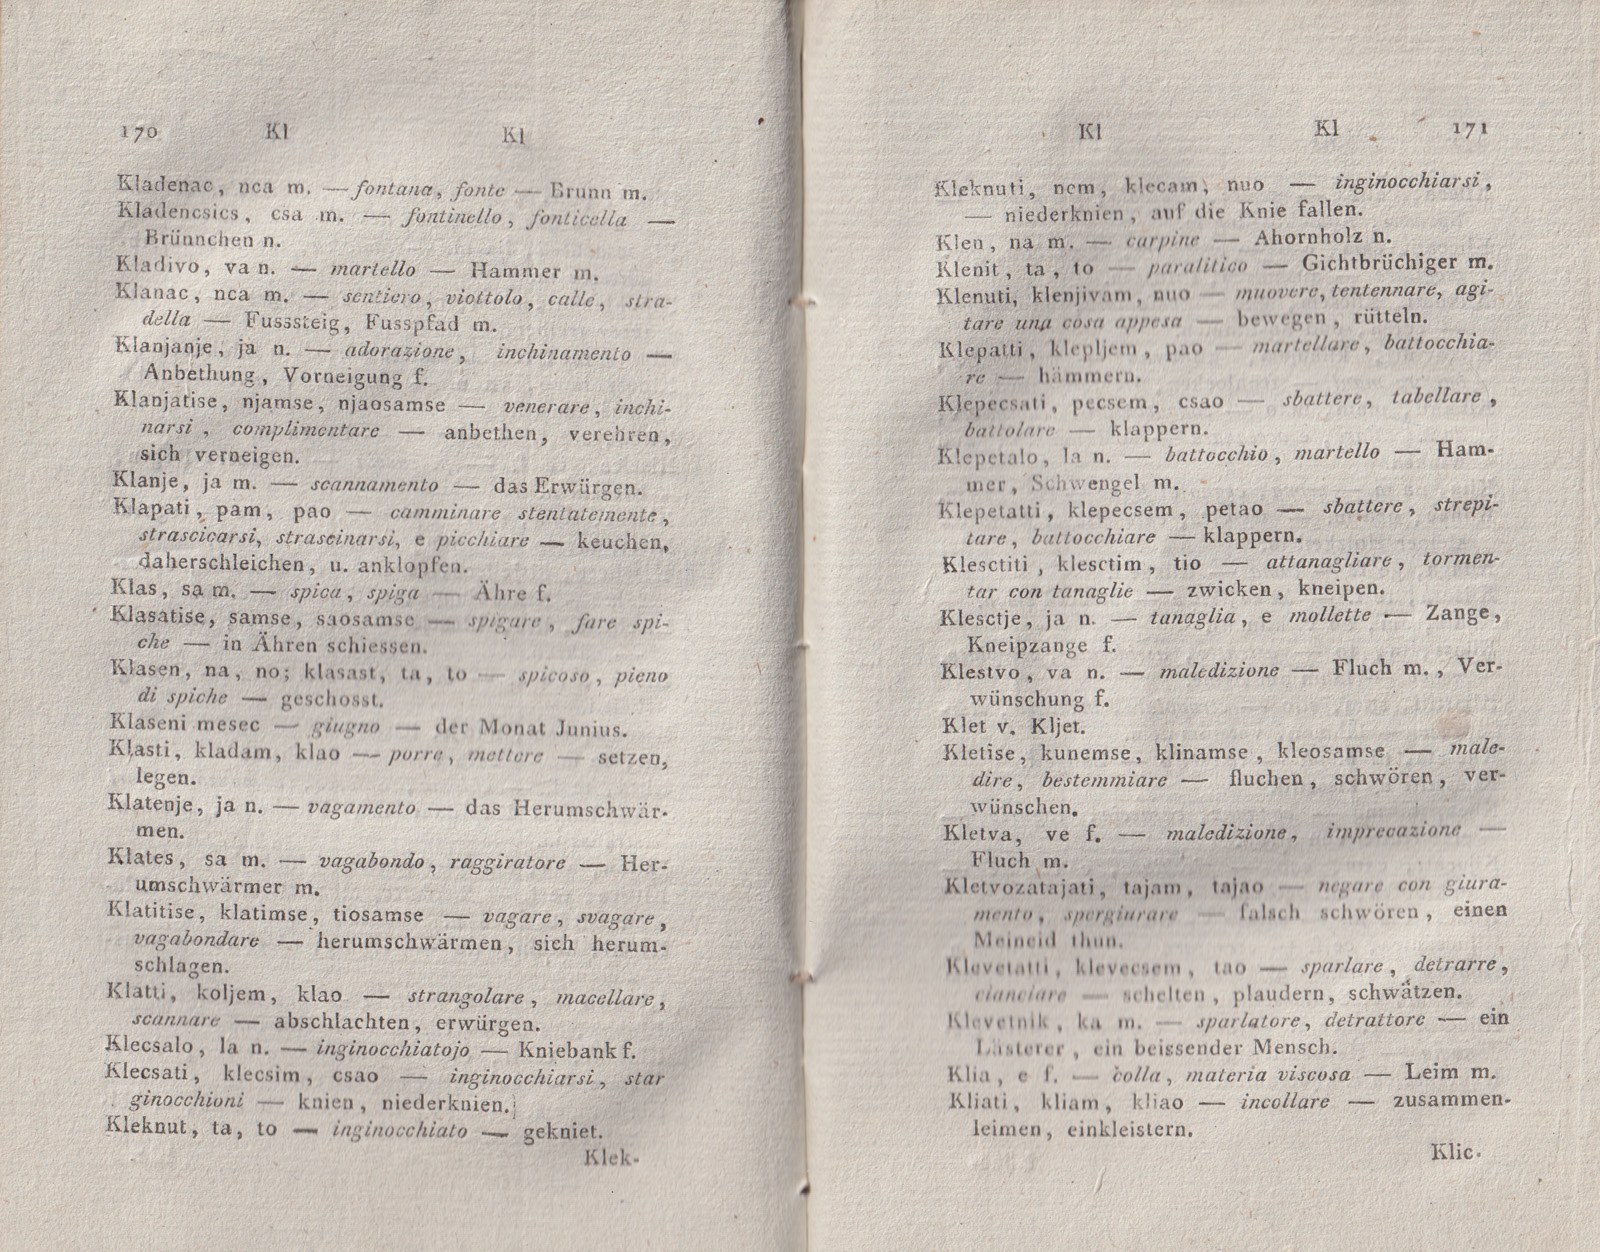 170 Kl Kl
Kladenac, nca m. — fontana, fonte — Brunn m.
Kladencsics, csa m. — fontinello, fonticella —
Brünnchen n.
Kladivo, va n. — martello — Hammer m.
Klanac, nca m. — sentiero, viottolo, calle, stra-
della — Fusssteig, Fusspfad m.
Klanjanje, ja n. — adorazione, inchinamento —
Anbethung, Vorneigung f.
Klanjatise, njamse, njaosamse — venerare, inchi-
narsi, complimentare — anbethen, verehren,
sich verneigen.
Klanje, ja m. — scannamento — das Erwürgen.
Klapati, pam, pao — camminare stentatemente,
strascicarsi, strascinarsi, e picchiare — keuchen,
daherschleichen, u. anklopfen.
Klas, sa m. — spica, spiga — Ähre f.
Klasatise, samse, saosamse — spigare, fare spi-
che — in Ähren schiessen.
Klasen, na, no; klasast, ta, to — spicoso, pieno
di spiche — geschosst.
Klaseni mesec — giugno — der Monat Junius.
Klasti, kladam, klao — porre, mettere — setzen,
legen.
Klatenje, ja n. — vagamento — das Herumschwär-
men.
Klates, sa m. — vagabondo, raggiratore — Her-
umschwärmer m.
Klatitise, klatimse, tiosamse — vagare, svagare,
vagabondare — herumschwärmen, sich herum-
schlagen.
Klatti, koljem, klao — strangolare, macellare,
scannare — abschlachten, erwürgen.
Klecsalo, la n. — inginocchiatojo — Kniebank f.
Klecsati, klecsim, csao — inginocchiarsi, star
ginocchioni — knien, niederknien.
Kleknut, ta, to — inginocchiato — gekniet.
Klek-
Kl Kl 171
Kleknuti, nem, klecam, nuo — inginocchiarsi,
— niederknien, auf die Knie fallen.
Klen, na m. — carpine — Ahornholz n.
Klenit, ta, to — paralitico — Gichtbrüchiger m.
Klenuti, klenjivam, nuo — muovere, tentennare, agi-
tare una cosa appesa — bewegen, rütteln.
Klepatti, klepljem, pao — martellare, battocchia-
re — hämmern.
Klepecsati, pecsem, csao — sbattere, tabellare,
battolare — klappern.
Klepetalo, la n. — battocchio, martello — Ham-
mer, Schwengel m.
Klepetatti, klepecsem, petao — sbattere, strepi-
tare, battocchiare — klappern.
Klesctiti, klesctim, tio — attanagliare, tormen-
tar con tanaglie — zwicken, kneipen.
Klesctje, ja n. — tanaglia, e mollette — Zange,
Kneipzange f.
Klestvo, va n. — maledizione — Fluch m., Ver-
wünschung f.
Klet v. Kljet.
Kletise, kunemse, klinamse, kleosamse — male-
dire, bestemmiare — fluchen, schwören, ver-
wünschen.
Kletva, ve f. — maledizione, imprecazione —
Fluch m.
Kletvozatajati, tajam, tajao — negare con giura-
mento, spergiurare — falsch schwören, einen
Meineid thun.
Klevetatti, klevecsem, tao — sparlare, detrarre,
cianciare — schelten, plaudern, schwätzen.
Klevetnik, ka m. — sparlatore, detrattore — ein
Lästerer, ein beissender Mensch.
Klia, e f. — colla, materia viscosa — Leim m.
Kliati, kliam, kliao — incollare — zusammen-
leimen, einkleistern.
Klic-